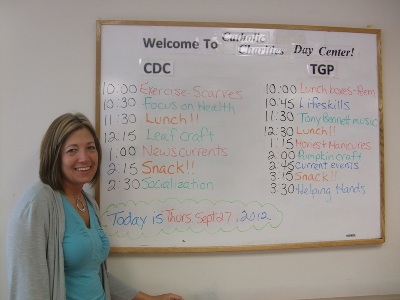 Welcome To Catholic Charities Day Center!
CDC
10:00 Exercise-Scarves
10:30 Focus on Health
11:30 Lunch!!
12:15 Leaf Craft
1:00 Newscurrents
2:15 Snack!!
2:30 Socialization
TGP
10:00 Lunch boxes-Rem
10:45 Lifeskills
11:30 Tony Bennett music
12:30 Lunch!!
1:15 Manicures
2:00 Pumpkin craft
2:45 Current events
3:15 Snack!!
3:30 Helping Hands
Today is Thurs. Sept 27, 2012